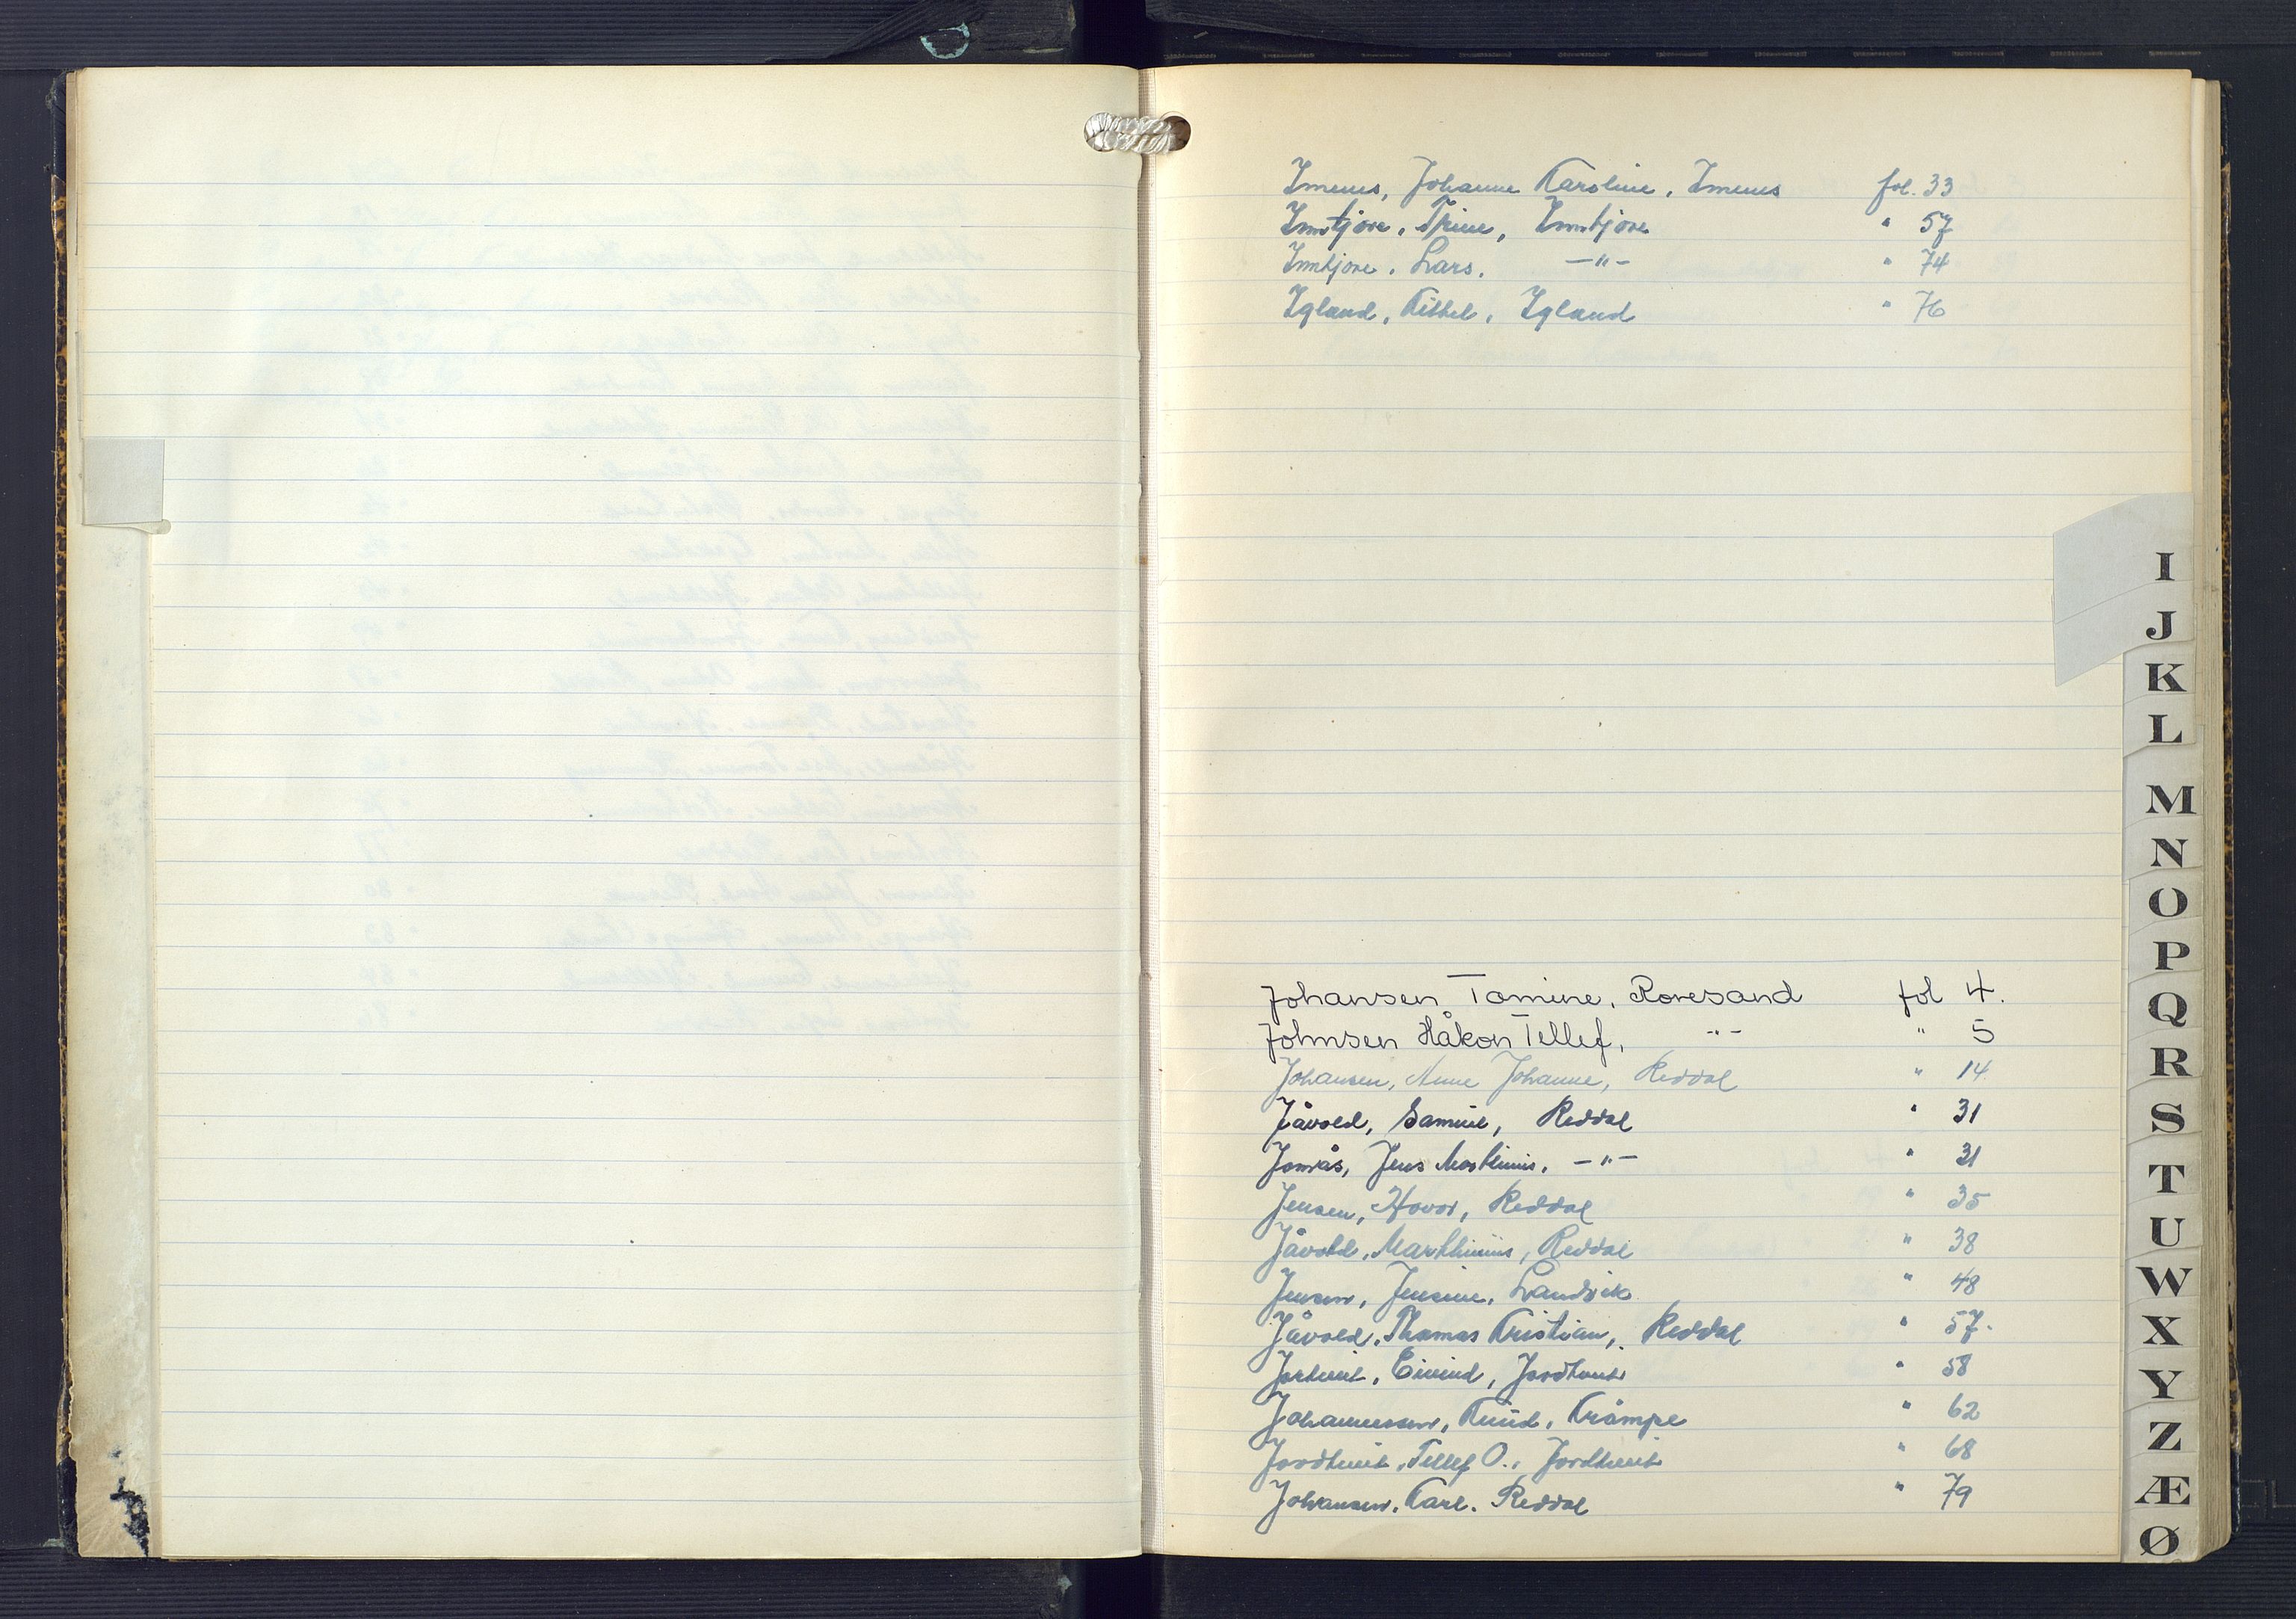 Imenes, Johanne Karoline, Imenes fol. 33
Inntjore, Trine, Inntjore " 57
Inntjore, Lars, -"- " 74
Igland, Kittel, Igland " 76
Johansen Tomine, Roresand fol 4.
Johnsen Håkon Tellef, -"- " 5
Johansen, Anne Johanne, Reddal " 14
Jåvold, Samuel, Reddal " 31
Jomås, Jens Marthinius, -"- " 31
Jensen, Hovor, Reddal " 35
Jåvold, Marthinius, Reddal " 38
Jensen, Jensine, Landvik " 48
Jåvold, Thomas Kristian, Reddal " 57.
Jortveit, Eivind, Jordtveit " 58
Johannessen, Knud, Kråmpe " 62
Jordtveit, Tellef O., Jordtveit " 68
Johansen, Karl. Reddal " 79
I
J
K
L
M
N
O
P
Q
R
S
T
U
W
X
Y
Z
Æ
Ø